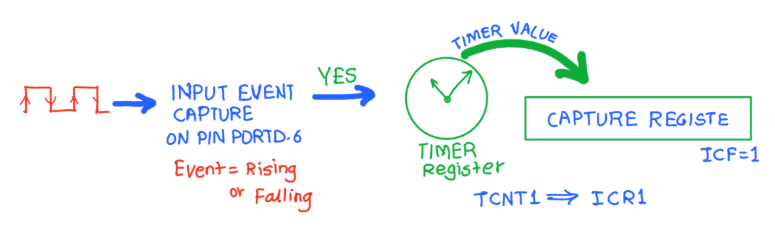 INPUT EVENT
CAPTURE
ON PIN PORTD.6
Event = Rising
or Falling
YES
TIMER VALUE
TIMER
Register
CAPTURE REGISTE
ICF=1
TCNT1 ⇒ ICR1